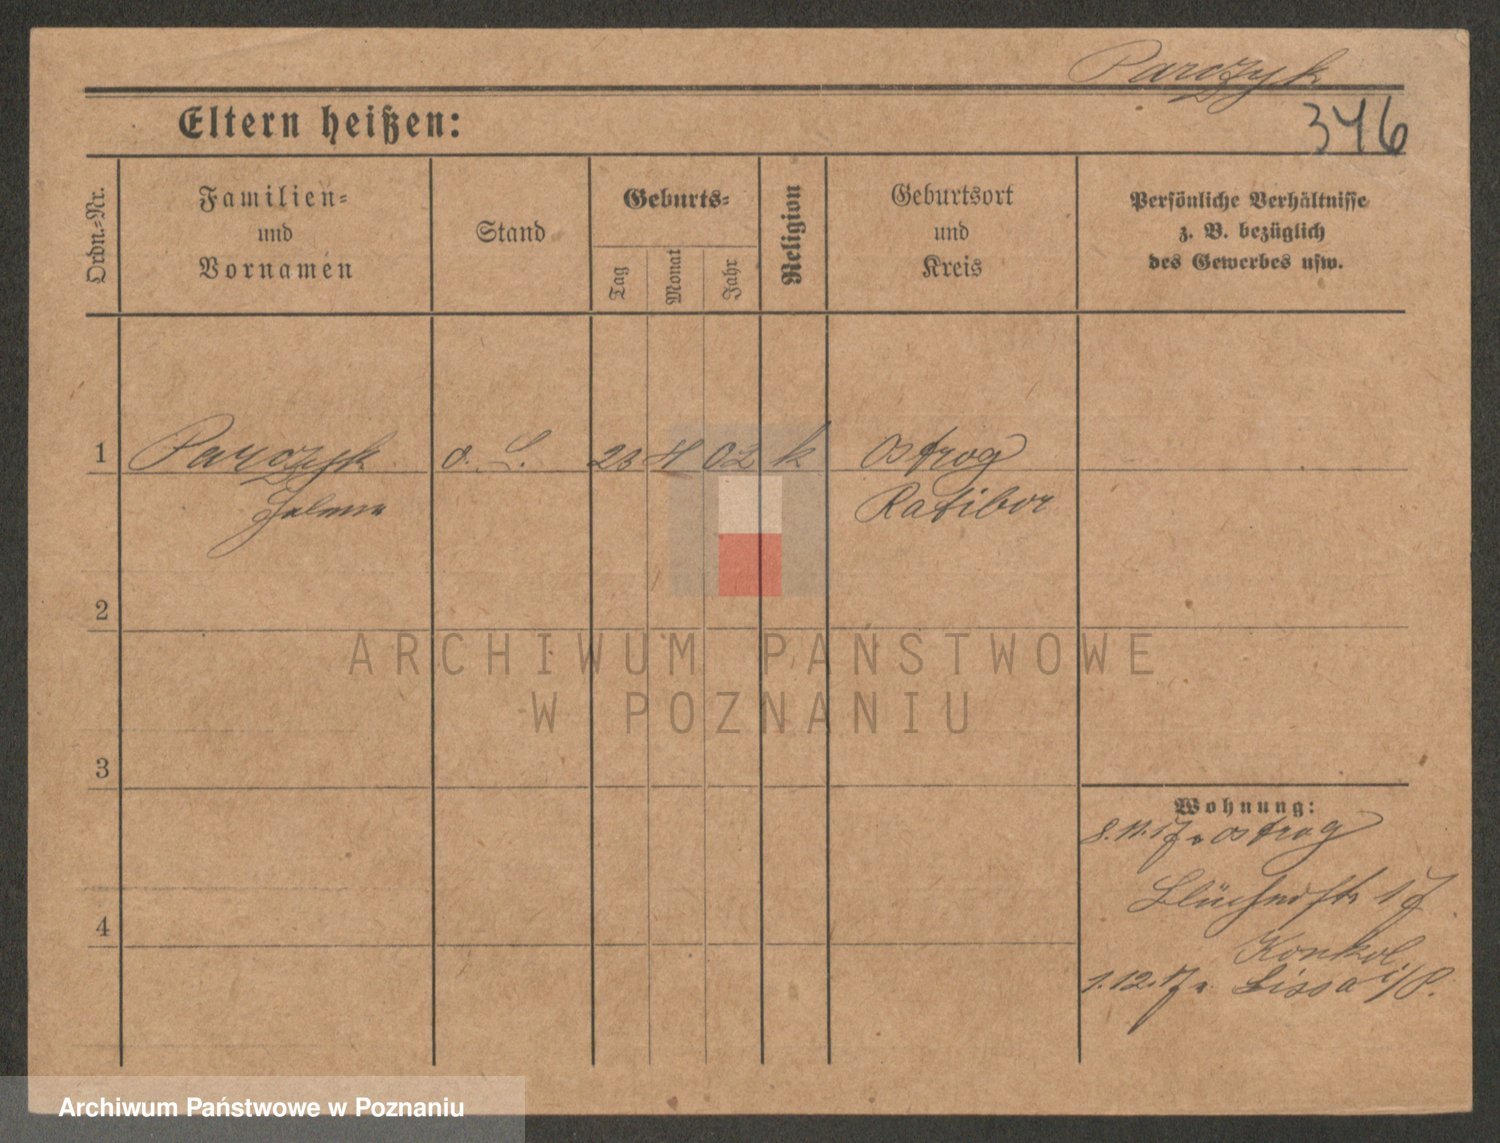 Parczyk
Eltern heißen:
346
Ordn.-Nr.
Familien-
und
Vornamen
Stand
Geburts-
Tag
Monat
Jahr
Religion
Geburtsort
und
Kreis
Persönliche Verhältnisse
z. B. bezüglich
des Gewerbes usw.
1 Parczyk o. L. 23 4 02 k Ostrog
Ratibor
2
ARCHIWUM PAŃSTWOWE
W POZNANIU
3
Wohnung:
8.11.17 v Ostrog
Blücherstr 17
4
Konkol.
1.12.17 n. Lissa i/P.
Archiwum Państwowe w Poznaniu